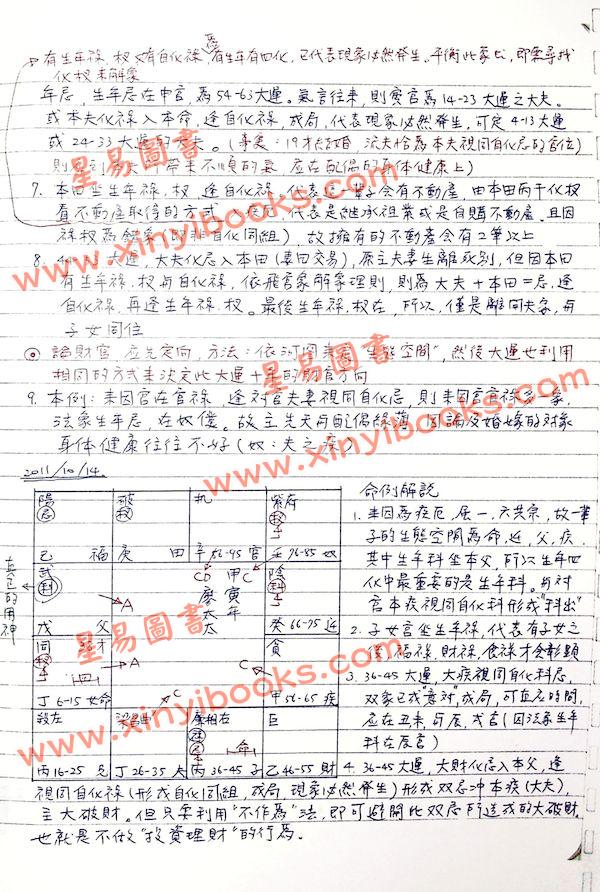 有生年祿、權又有自化祿 有生年有四化，已代表現象必然發生。平衡此象即需尋找
化权來解象
年忌，生年忌在中宮，為54-63大運。氣言往來，則實宮為14-23大運之大夫。
或本夫化祿入本命，逢自化祿，成局，代表現象必然發生，可定4-13大運
或24-33大運的大夫。
7. 本田坐生年祿、权，逢自化祿，代表這一輩子會有不動產，由本田丙干化权
看不動產取得的方式 代表是繼承祖業或是自購不動產，且因
祿权為 (即非自化同組)，故擁有的不動產會有2筆以上
8. 大運，大夫化忌入本田(妻田交易)，原主夫妻生離死別，但因本田
有生年祿、权与自化祿，依飛宮象解象理則，則為大夫+本田=忌，逢
自化祿，再逢生年祿、权。最後生年祿、权在，所以，僅是離開夫家，与
子女同住
論財官，应先定向，方法：依河圖 "生態空間"，然後大運也利用
相同的方式來決定此大運十年的財官方向
9. 本例：來因宮在官祿，逢对宮夫妻視同自化忌，則來因宮官祿多一象，
法象生年忌，在奴僕。故主先天与配偶緣薄，因論及婚嫁的对象
身体健康往往不好(奴：夫之疾)
2011/10/14.
命例解說
1. 來因為疾厄，屬一、六共宗，故一輩
子的生態空間為命、遷、父、疾，
其中生年科坐本父，所以生年四
化中最重要的是生年科。与对
宮本疾視同自化科形成"科出"
2. 子女宮坐生年祿，代表有子女之
後，福祿、財祿、食祿才會彰顯
3. 36-45大運，大疾視同自化科忌，
双象已成"意对"，成局，可直忌時間，
忌在丑未、 宮(因法象生年
科在辰宮)
4. 36-45大運，大財化忌入本父，逢
視同自化祿(形成自化同組，成局，現象必然發生)形成双忌冲本疾(大夫)，
主大破財。但只要利用"不作為"法，即可避開此双忌所造成的大破財
也就是不做"投資理財"的行為。
陽
忌
己 福
破
权
庚 田
机
辛 56-45 官
紫府
壬 76-85 奴
武
科
戊 父
A
CD 甲C
寅
年
陰
癸 66-75 遷
同
丁 6-15 女命
A
C
貪
甲 56-65 疾
殺左
丙 16-25 兄
梁昌曲
丁 26-35 夫
廉相右
命
丙 36-45 子
巨
乙 46-55 財
真金的用神
星易圖書
www.xinyibooks.com
星易圖書
www.xinyibooks.com
星易圖書
www.xinyibooks.com
星易圖書
www.xinyibooks.com